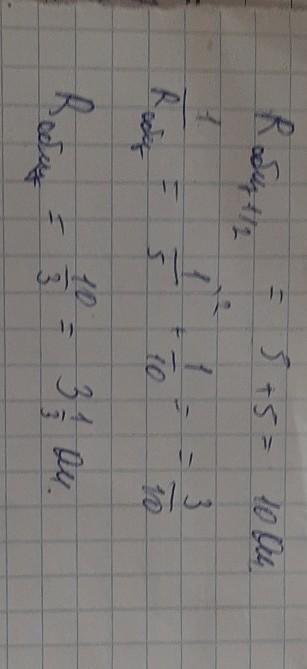 R общ 1,2 = 5 + 5 = 10 Ом.
1/R общ = 1/5 \2 + 1/10 = = 3/10
R общ = 10/3 = 3 1/3 Ом.